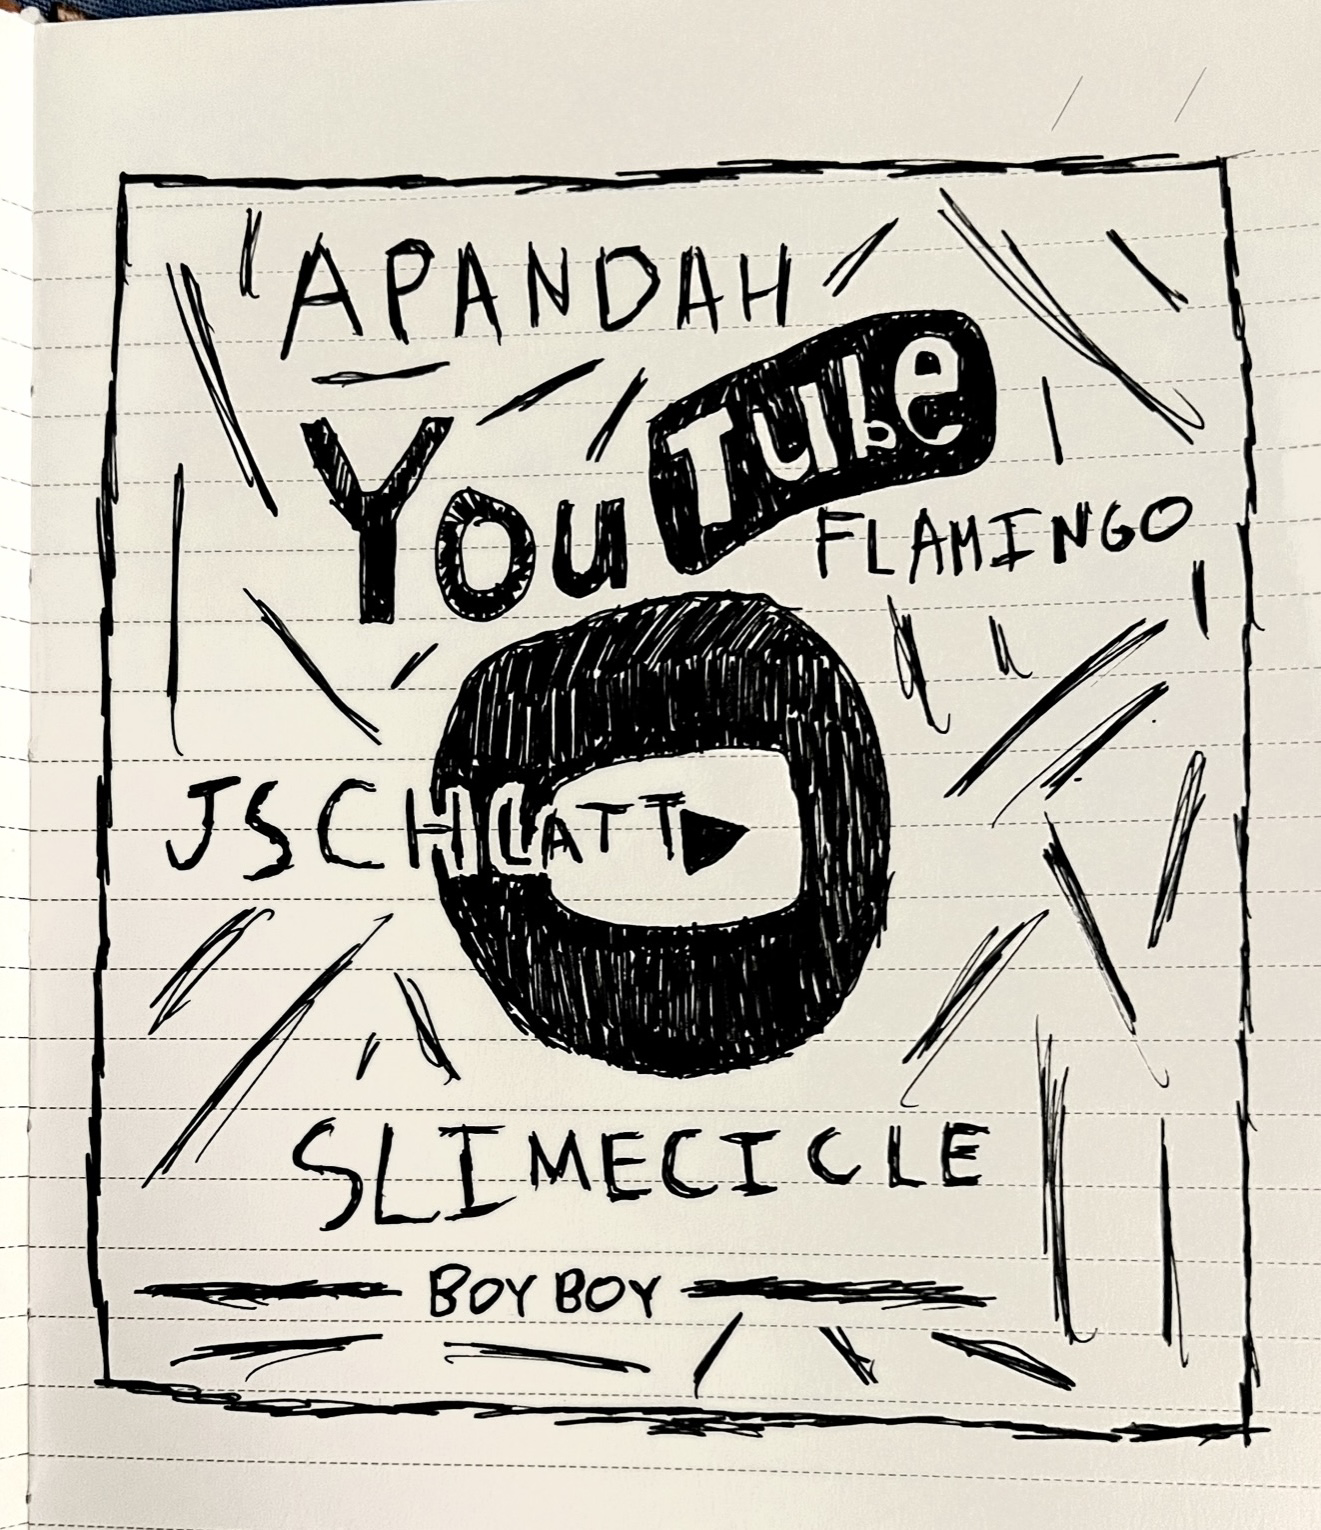 APANDAH
YouTube
FLAMINGO
JSCHLATT
SLIMECICLE
BOY BOY